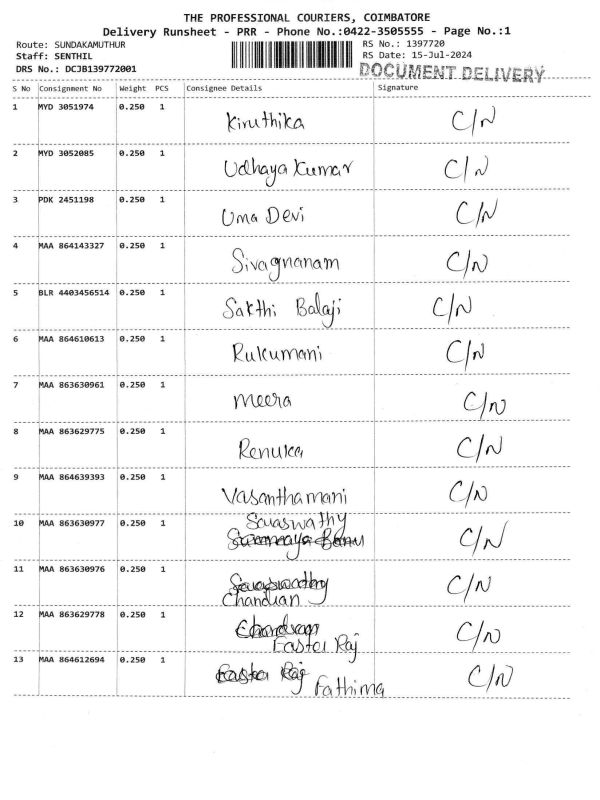 THE PROFESSIONAL COURIERS, COIMBATORE
Delivery Runsheet - PRR - Phone No.:0422-3505555 - Page No.:1
Route: SUNDAKAMUTHUR
RS No.: 1397720
Staff: SENTHIL
RS Date: 15-Jul-2024
DRS No.: DCJB139772001
DOCUMENT DELIVERY
S No Consignment No Weight PCS Consignee Details Signature
1 MYD 3051974 0.250 1 Kiruthika C/N
2 MYD 3052085 0.250 1 Udhaya Kumar C/N
3 PDK 2451198 0.250 1 Uma Devi C/N
4 MAA 864143327 0.250 1 Sivagnanam C/N
5 BLR 4403456514 0.250 1 Sakthi Balaji C/N
6 MAA 864610613 0.250 1 Rukumani C/N
7 MAA 863630961 0.250 1 Meera C/N
8 MAA 863629775 0.250 1 Renuka C/N
9 MAA 864639393 0.250 1 Vasanthamani C/N
10 MAA 863630977 0.250 1 Saraswathy C/N
11 MAA 863630976 0.250 1 Saraswathy C/N
Chandran
12 MAA 863629778 0.250 1 Chandran C/N
Easter Raj
13 MAA 864612694 0.250 1 Easter Raj Fathima C/N